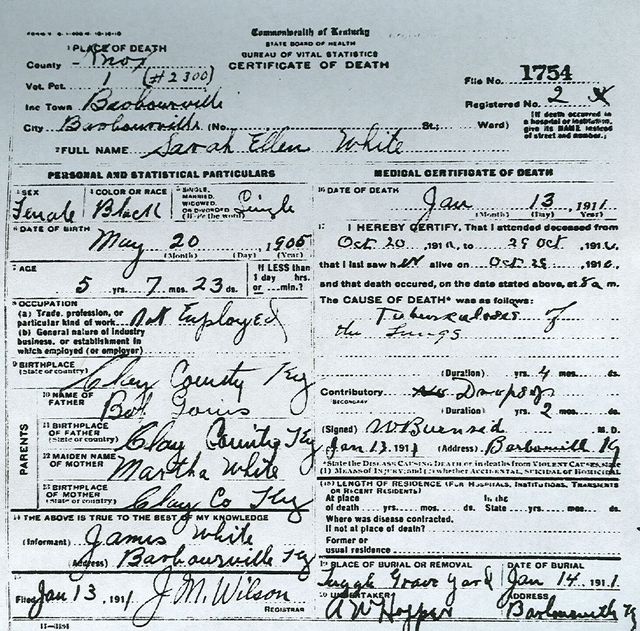 Commonwealth of Kentucky
STATE BOARD OF HEALTH
BUREAU OF VITAL STATISTICS
CERTIFICATE OF DEATH
1 PLACE OF DEATH
County Knox
Vot. Pct. 1 (#2300)
Inc Town Barbourville
City Barbourville (No. St.; Ward)
File No. 1754
Registered No. 2
(If death occurred in a hospital or institution, give its NAME instead of street and number.)
2 FULL NAME Sarah Ellen White
PERSONAL AND STATISTICAL PARTICULARS
3 SEX Female
4 COLOR OR RACE Black
5 SINGLE, MARRIED, WIDOWED, OR DIVORCED (Write the word) Single
6 DATE OF BIRTH May 20, 1905
(Month) (Day) (Year)
7 AGE 5 yrs. 7 mos. 23 ds.
If LESS than 1 day hrs. or min.?
8 OCCUPATION
(a) Trade, profession, or particular kind of work Not Employed
(b) General nature of industry business, or establishment in which employed (or employer)
9 BIRTHPLACE (State or country) Clay County Ky
PARENTS
10 NAME OF FATHER Bob
11 BIRTHPLACE OF FATHER (State or country) Clay County Ky
12 MAIDEN NAME OF MOTHER Martha White
13 BIRTHPLACE OF MOTHER (State or country) Clay Co Ky
14 THE ABOVE IS TRUE TO THE BEST OF MY KNOWLEDGE
(Informant) James White
(Address) Barbourville Ky
15
Filed Jan 13, 1911 J. M. Wilson
REGISTRAR
11-3184
MEDICAL CERTIFICATE OF DEATH
16 DATE OF DEATH Jan 13, 1911
(Month) (Day) (Year)
17 I HEREBY CERTIFY, That I attended deceased from
Oct 20, 1910, to 29 Oct, 1910,
that I last saw her alive on Oct 29, 1910,
and that death occured, on the date stated above, at 8 a m.
The CAUSE OF DEATH* was as follows:
Tuberkuloses of
the Lungs
(Duration) yrs. 4 mos. ds.
Contributory Dropsy
SECONDARY
(Duration) yrs. 2 mos. ds.
(Signed) W Burnsid M. D.
Jan 13, 1911 (Address) Barbourville Ky
*State the DISEASE CAUSING DEATH or in deaths from VIOLENT CAUSES, state (1) MEANS OF INJURY; and (2) whether ACCIDENTAL, SUICIDAL or HOMICIDAL
18 LENGTH OF RESIDENCE (FOR HOSPITALS, INSTITUTIONS, TRANSIENTS OR RECENT RESIDENTS)
At place of death yrs. mos. ds. In the State yrs. mos. ds.
Where was disease contracted.
If not at place of death?
Former or usual residence
19 PLACE OF BURIAL OR REMOVAL Tuggle Grave yard
DATE OF BURIAL Jan 14, 1911
20 UNDERTAKER A W Hopper
ADDRESS Barbourville Ky